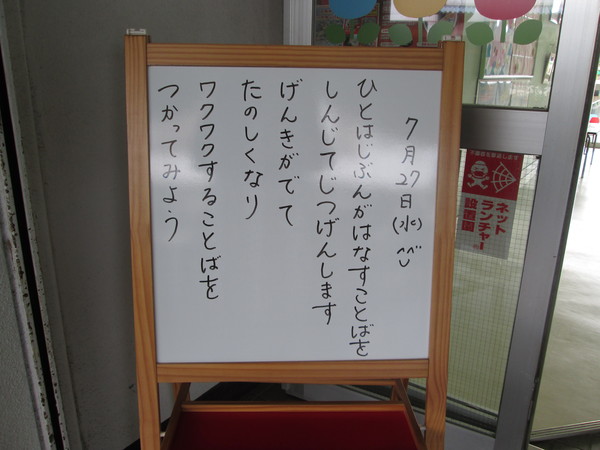 7月27日(水)^^
ひとはじぶんがはなすことばを
しんじてじつげんします
げんきがでて
たのしくなり
ワクワクすることばを
つかってみよう
ネット
ランチャー
設置園